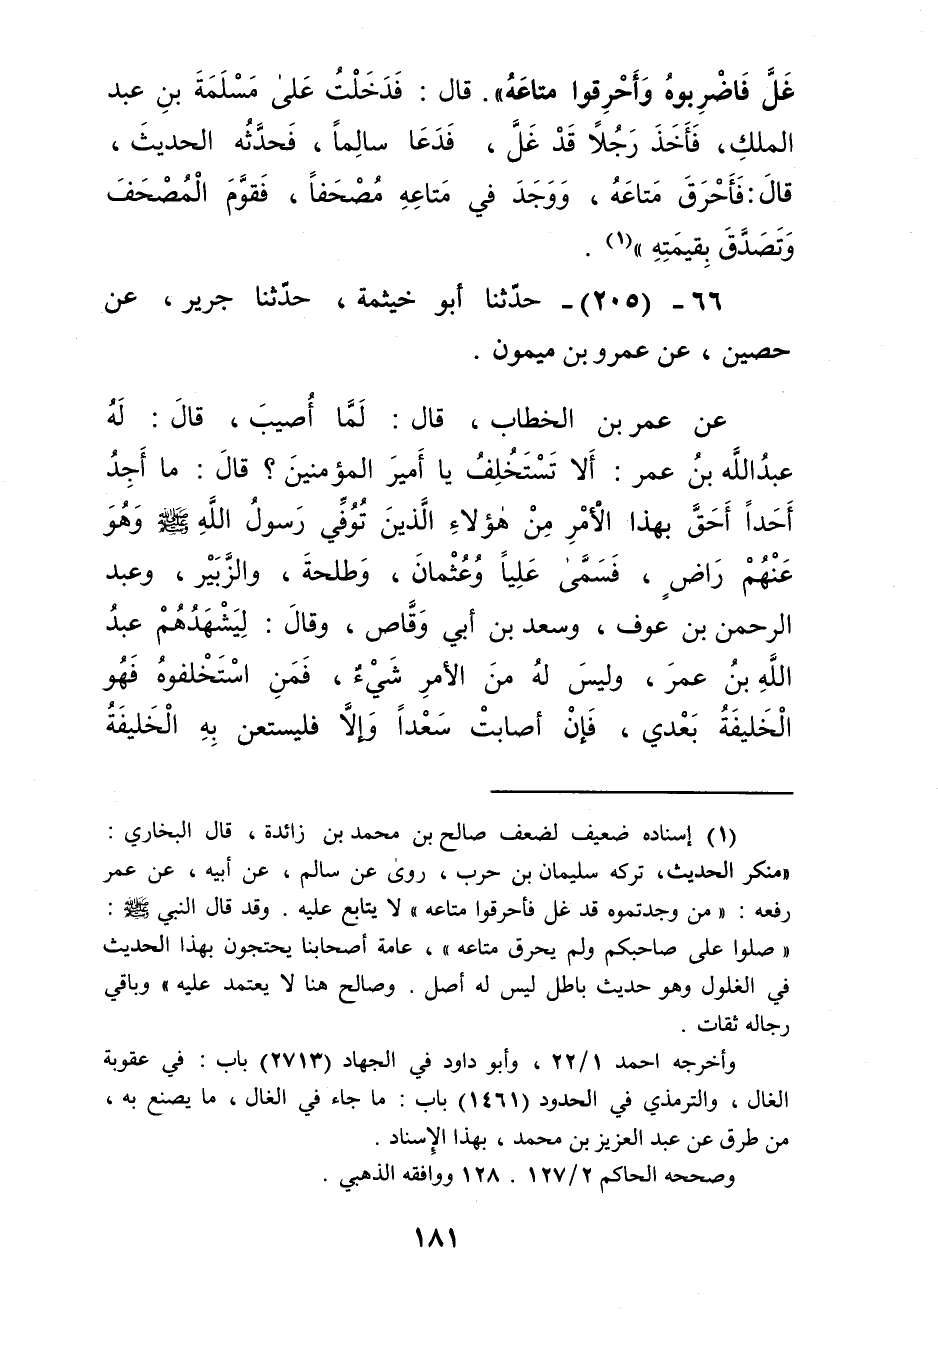 غَلَّ فَاضْرِبوهُ وَأَحْرِقوا متاعَهُ». قال : فَدَخَلْتُ عَلىٰ مَسْلَمَةَ بنِ عبد
الملكِ، فَأَخَذَ رَجُلاً قَدْ غَلَّ ، فَدَعَا سالِماً ، فَحدَّثُه الحديثَ ،
قالَ:فَأَحْرَقَ مَتاعَهُ ، وَوَجَدَ في مَتاعِهِ مُصْحَفاً ، فَقوَّمَ الْمُصْحَفَ
وَتَصَدَّقَ بِقيمَتِهِ »(١) .
٦٦ ـ (٢٠٥)ـ حدّثنا أبو خيثمة ، حدّثنا جرير ، عن
حصين ، عن عمرو بن ميمون .
عن عمر بن الخطاب ، قال : لَمَّا أُصيبَ ، قالَ : لَهُ
عبدُاللَّه بنُ عمر : أَلا تَسْتَخْلِفُ يا أَميرَ المؤمنينَ ؟ قالَ : ما أَجِدُ
أَحَداً أَحَقَّ بهذا الْأَمْرِ مِنْ هٰؤلاءِ الَّذينَ تُوُفِّي رَسولُ اللَّهِ ﷺ وَهُوَ
عَنْهُمْ رَاضٍ ، فَسَمَّىٰ عَلِياً وُعُثْمانَ ، وَطلحةَ ، والزَّبَيْر ، وعبد
الرحمن بن عوف ، وسعد بن أبي وَقَّاص ، وقالَ : لِيَشْهَدُهُمْ عبدُ
اللَّهِ بنُ عمرَ ، وليسَ لهُ منَ الأمرِ شَيْءٌ ، فَمَنِ اسْتَخْلفوهُ فَهُو
الْخَليفَةُ بَعْدي ، فَإنْ أصابتْ سَعْداً وَإلَّا فليستعن بِهِ الْخَليفَةُ
(١) إسناده ضعيف لضعف صالح بن محمد بن زائدة ، قال البخاري :
«منكر الحديث، تركه سليمان بن حرب ، روىٰ عن سالم ، عن أبيه ، عن عمر
رفعه : « من وجدتموه قد غل فأحرقوا متاعه » لا يتابع عليه . وقد قال النبي ﷺ :
« صلوا على صاحبكم ولم يحرق متاعه » ، عامة أصحابنا يحتجون بهذا الحديث
في الغلول وهو حديث باطل ليس له أصل . وصالح هنا لا يعتمد عليه » وباقي
رجاله ثقات .
وأخرجه احمد ٢٢/١ ، وأبو داود في الجهاد (٢٧١٣) باب : في عقوبة
الغال ، والترمذي في الحدود (١٤٦١) باب : ما جاء في الغال ، ما يصنع به ،
من طرق عن عبد العزيز بن محمد ، بهذا الإسناد .
وصححه الحاكم ١٢٧/٢ . ١٢٨ ووافقه الذهبي .
١٨١